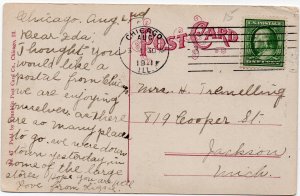 Chicago, Aug 2nd
Dear Ida:
Thought you
would like a
postal from Chi.
we are enjoying
ourselves, as there
are so many places
to go. we were down
town yesterday in
some of the large
stores, hope you are well
love from
POST CARD
CHICAGO
AUG
1911
ILL.
Mrs. H. Tremelling
819 Cooper St.
Jackson
Mich.
15